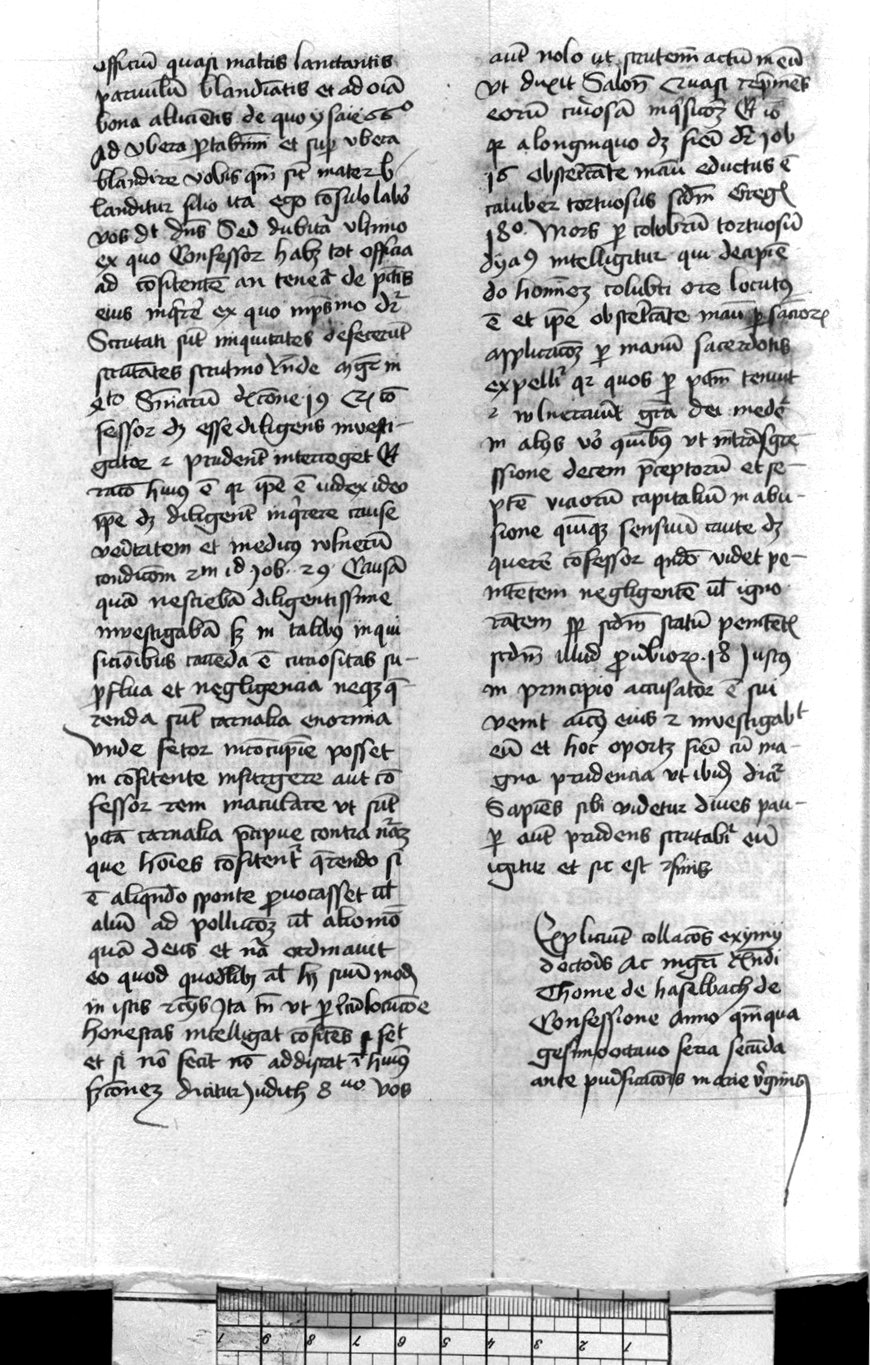 officiū quasi matris lanctantis
paruulum blandiētis et ad oīa
bona alliciētis de quo ysaie 66º
Ad vbera portabimī et sup vbera
blandire vobis qm̄ sic mater b
landitur filio ita ego cōsulabor
vos dt dn̄s Sed dubitat vltimo
ex quo Confessor habz tot officia
ad cōfitentē an teneat de pctīs
eius inqrere ex quo in ps̄mo dr̄
Scrutati sūt iniquitates defecerūt
scrutātes scrutinio Vnde mgr in
4to Sn̄iarū dx̄cōne 19 cō
fessor dz esse diligens investi-
gator et prudent interroget Et
raco huius ē qr ipe ē iudex ideo
ipe dz diligent inqrere cause
veritatem et medicus vlnerū
condicōm 2m id Job 29 Causā
quā nesciebā diligentissime
investigabā sz in talibus inqui
sicionibus cauēda ē curiositas su-
perflua et negligencia neqz q̄
renda sūt carnalia enormia
Vnde fetor posset
in cōfitente insurgere aut cō
fessor rem maculare vt sūt
pctā carnalia p̄cipue contra nāz
que hoīes cōfitent̄ q̄rendo si
ē aliqn̄do sponte prouocasset vl
aliū ad pollucōz vl alio mō
quā deus et nā ordinauit
eo quod quodlibz al hz suū modū
in istis Ita tn̄ vt p locucōe
honestas intelligat cōfitēs si fec
et si nō fecit nō addiscat huius
dicitur Judith 8uo vos
aut nolo vt scrutem actū meū
vt dixit Salon Quasi rep̄mens
eorū curiosā inqsicōz Et iō
qr a longinquo dz fieri dr Job
16 obstetricāte manu eductus ē
coluber tortuosus scdm Greg
18º Mors p colubrū tortuosū
dyas intelligitur qui decipiē
do hominez colubri ore locutus
ē et ipe obstetricāte manu p
applicacōz p manū sacerdotis
expellit qr quos p pctm tenuit
et vlnerauit gra dei medet
in alijs vo quibus vt in trāsgre
ssione decem p̄ceptorū et se-
ptē viciorū capitaliū in abu-
sione quinqz sensuum caute dz
querere cōfessor qn̄do videt pe-
nitētem negligentē vl igno
rātem scdm statū penitēt
scdm illud prouerbior 18 Justus
in principio accusator ē sui
venit amicus eius et investigabit
eū et hoc oportz fieri cū ma-
gna prudencia vt ibid dicit
Sapiēs sibi videtur diues pau-
per aut prudens scrutabit eū
igitur et sic est finis
Expliciūt collacōes eximij
doctoris Ac mgrī Rēuēndi
Thome de haselbach de
Confessione Anno qm̄qua
gesimooctauo feria secūda
ante purificacōis marie v̄ginis
1 9 8 7 6 5 4 3 2 1